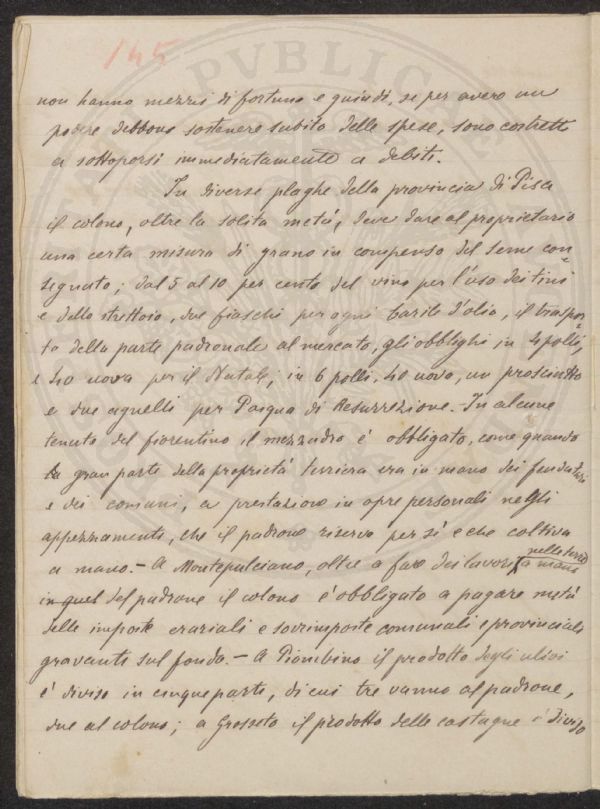 145
non hanno mezzi di fortuna e quindi, se per avere un
podere debbono sostenere subito delle spese, sono costretti
a sottoporsi immediatamente a debiti.
In diverse plaghe della provincia di Pisa
il colono, oltre la solita metà, deve dare al proprietario
una certa misura di grano in compenso del seme con=
segnato; dal 5 al 10 per cento del vino per l'uso dei tini
e dello strettoio, due fiaschi per ogni barile d'olio, il traspor=
to della parte padronale al mercato, gli obblighi in 4 polli,
e 40 uova per il Natale; in 6 polli, 40 uova, un prosciutto
e due agnelli per Pasqua di Resurrezione. In alcune
tenute del fiorentino il mezzadro è obbligato, come quando
la gran parte della proprietà terriera era in mano dei feudatari
e dei comuni, a prestazione in opre personali negli
appezzamenti, che il padrone riserva per sé e che coltiva
a mano. - A Montepulciano, oltre a fare dei lavori nelle terre a mano
in quel del padrone il colono è obbligato a pagare metà
delle imposte erariali e sovrimposte comunali e provinciali
gravanti sul fondo. - A Piombino il prodotto degli ulivi
è diviso in cinque parti, di cui tre vanno al padrone,
due al colono; a Grosseto il prodotto delle castagne è diviso
PVBLICE